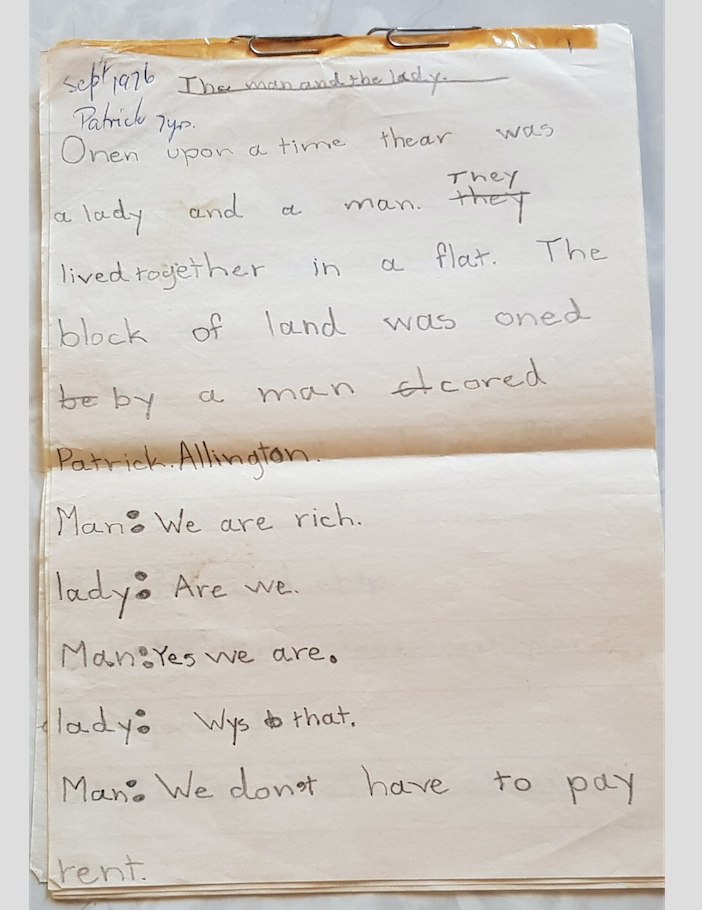 Sept 1976 The man and the lady.
Patrick 7yrs.
Onen upon a time thear was
a lady and a man. They they
lived together in a flat. The
block of land was oned
be by a man cl cored
Patrick. Allington.
Man: We are rich.
lady: Are we.
Man: Yes we are.
lady: Wys that.
Man: We don't have to pay
rent.